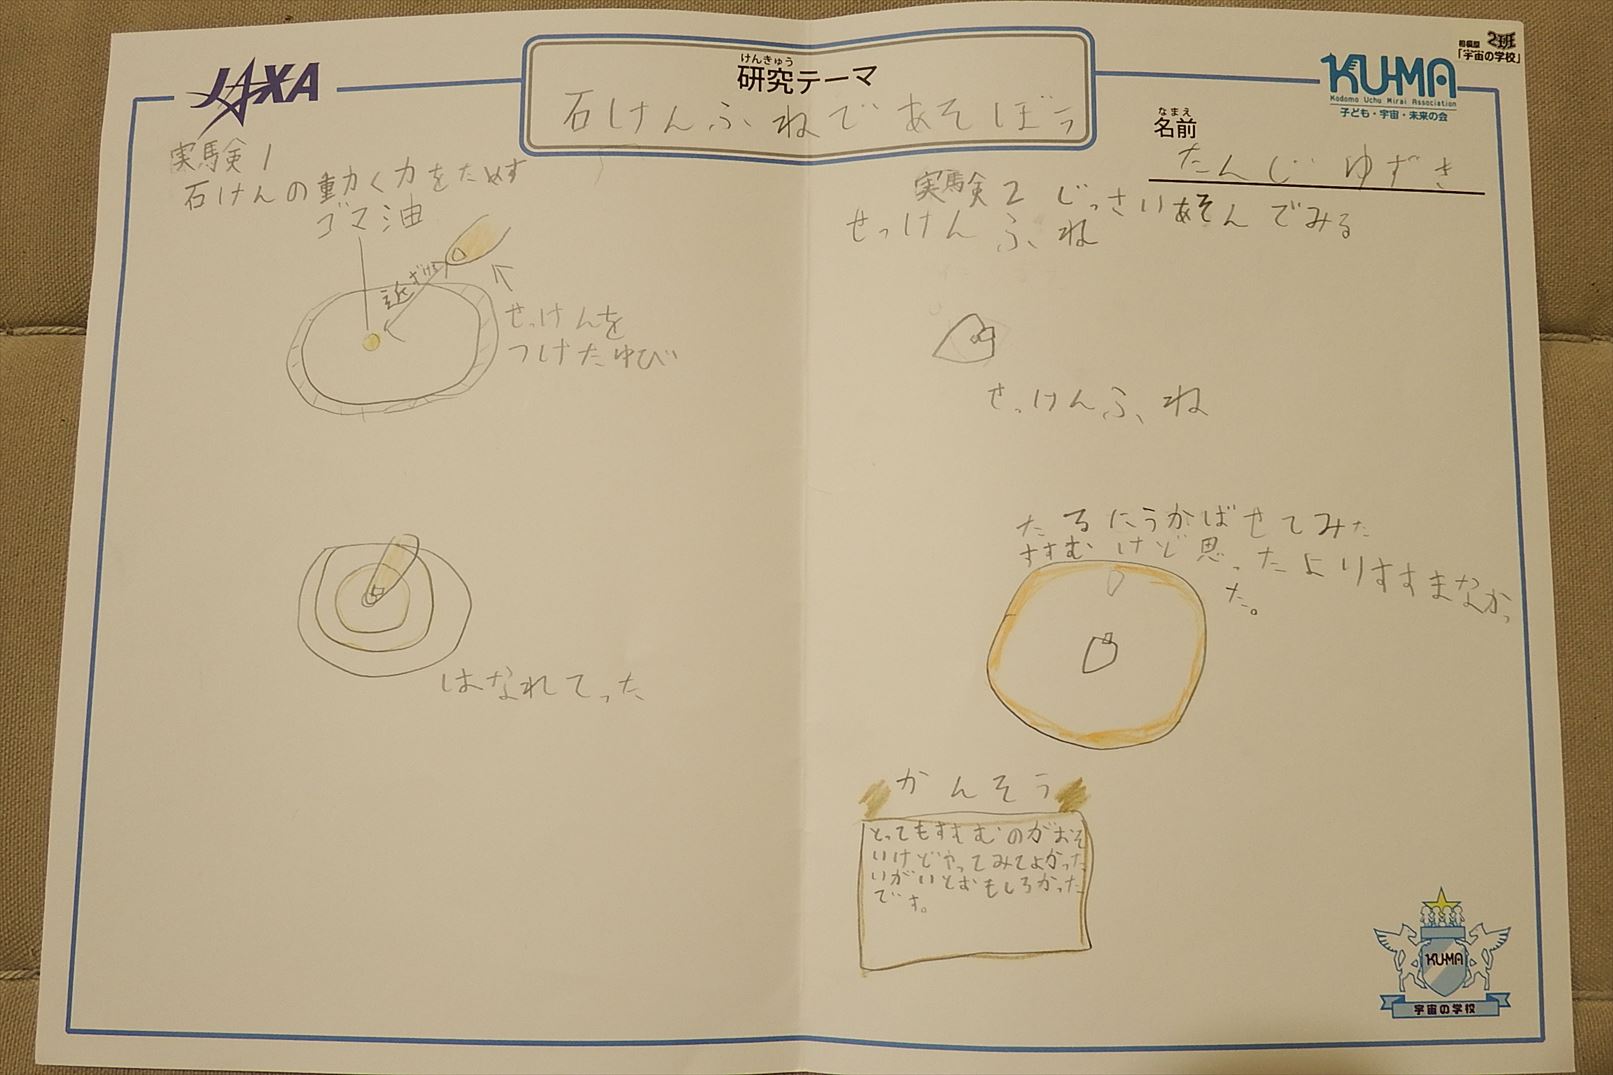 JAXA
けんきゅう
研究テーマ
石けんふねであそぼう
相模原 2班
「宇宙の学校」
KU-MA
Kodomo Uchu Mirai Association
子ども・宇宙・未来の会
なまえ
名前
たんじ ゆずき
実験1
石けんの動く力をためす
ゴマ油
近ずける
せっけんを
つけたゆび
はなれてった
実験2 じっさいあそんでみる
せっけんふね
せっけんふね
たるにうかばせてみた
すすむけど思ったよりすすまなかっ
た。
かんそう
とってもすすむのがおそ
いけどやってみてよかった
いがいとおもしろかった
です。
KU-MA
宇宙の学校